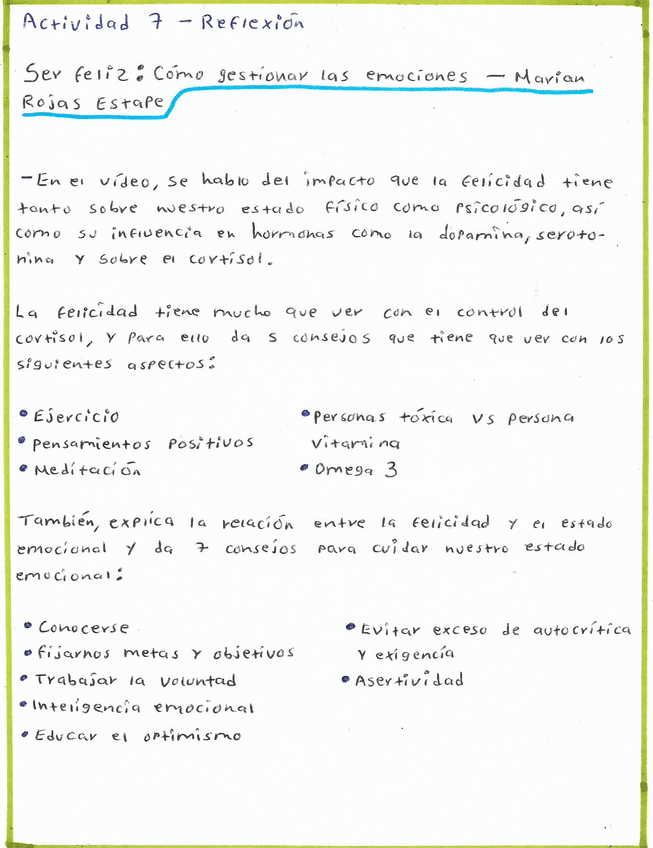 Actividad 7 - Reflexión
Ser feliz: Cómo gestionar las emociones - Marian
Rojas Estape
- En el vídeo, se hablo del impacto que la felicidad tiene
tanto sobre nuestro estado físico como psicológico, así
como su influencia en hormonas como la dopamina, seroto-
nina y sobre el cortisol.
La felicidad tiene mucho que ver con el control del
cortisol, y para ello da 5 consejos que tiene que ver con los
siguientes aspectos:
• Ejercicio
• Pensamientos Positivos
• Meditación
• Personas tóxica vs persona
vitamina
• Omega 3
También, explica la relación entre la felicidad y el estado
emocional y da 7 consejos para cuidar nuestro estado
emocional:
• Conocerse
• Fijarnos metas y objetivos
• Trabajar la voluntad
• Inteligencia emocional
• Educar el optimismo
• Evitar exceso de autocrítica
y exigencia
• Asertividad